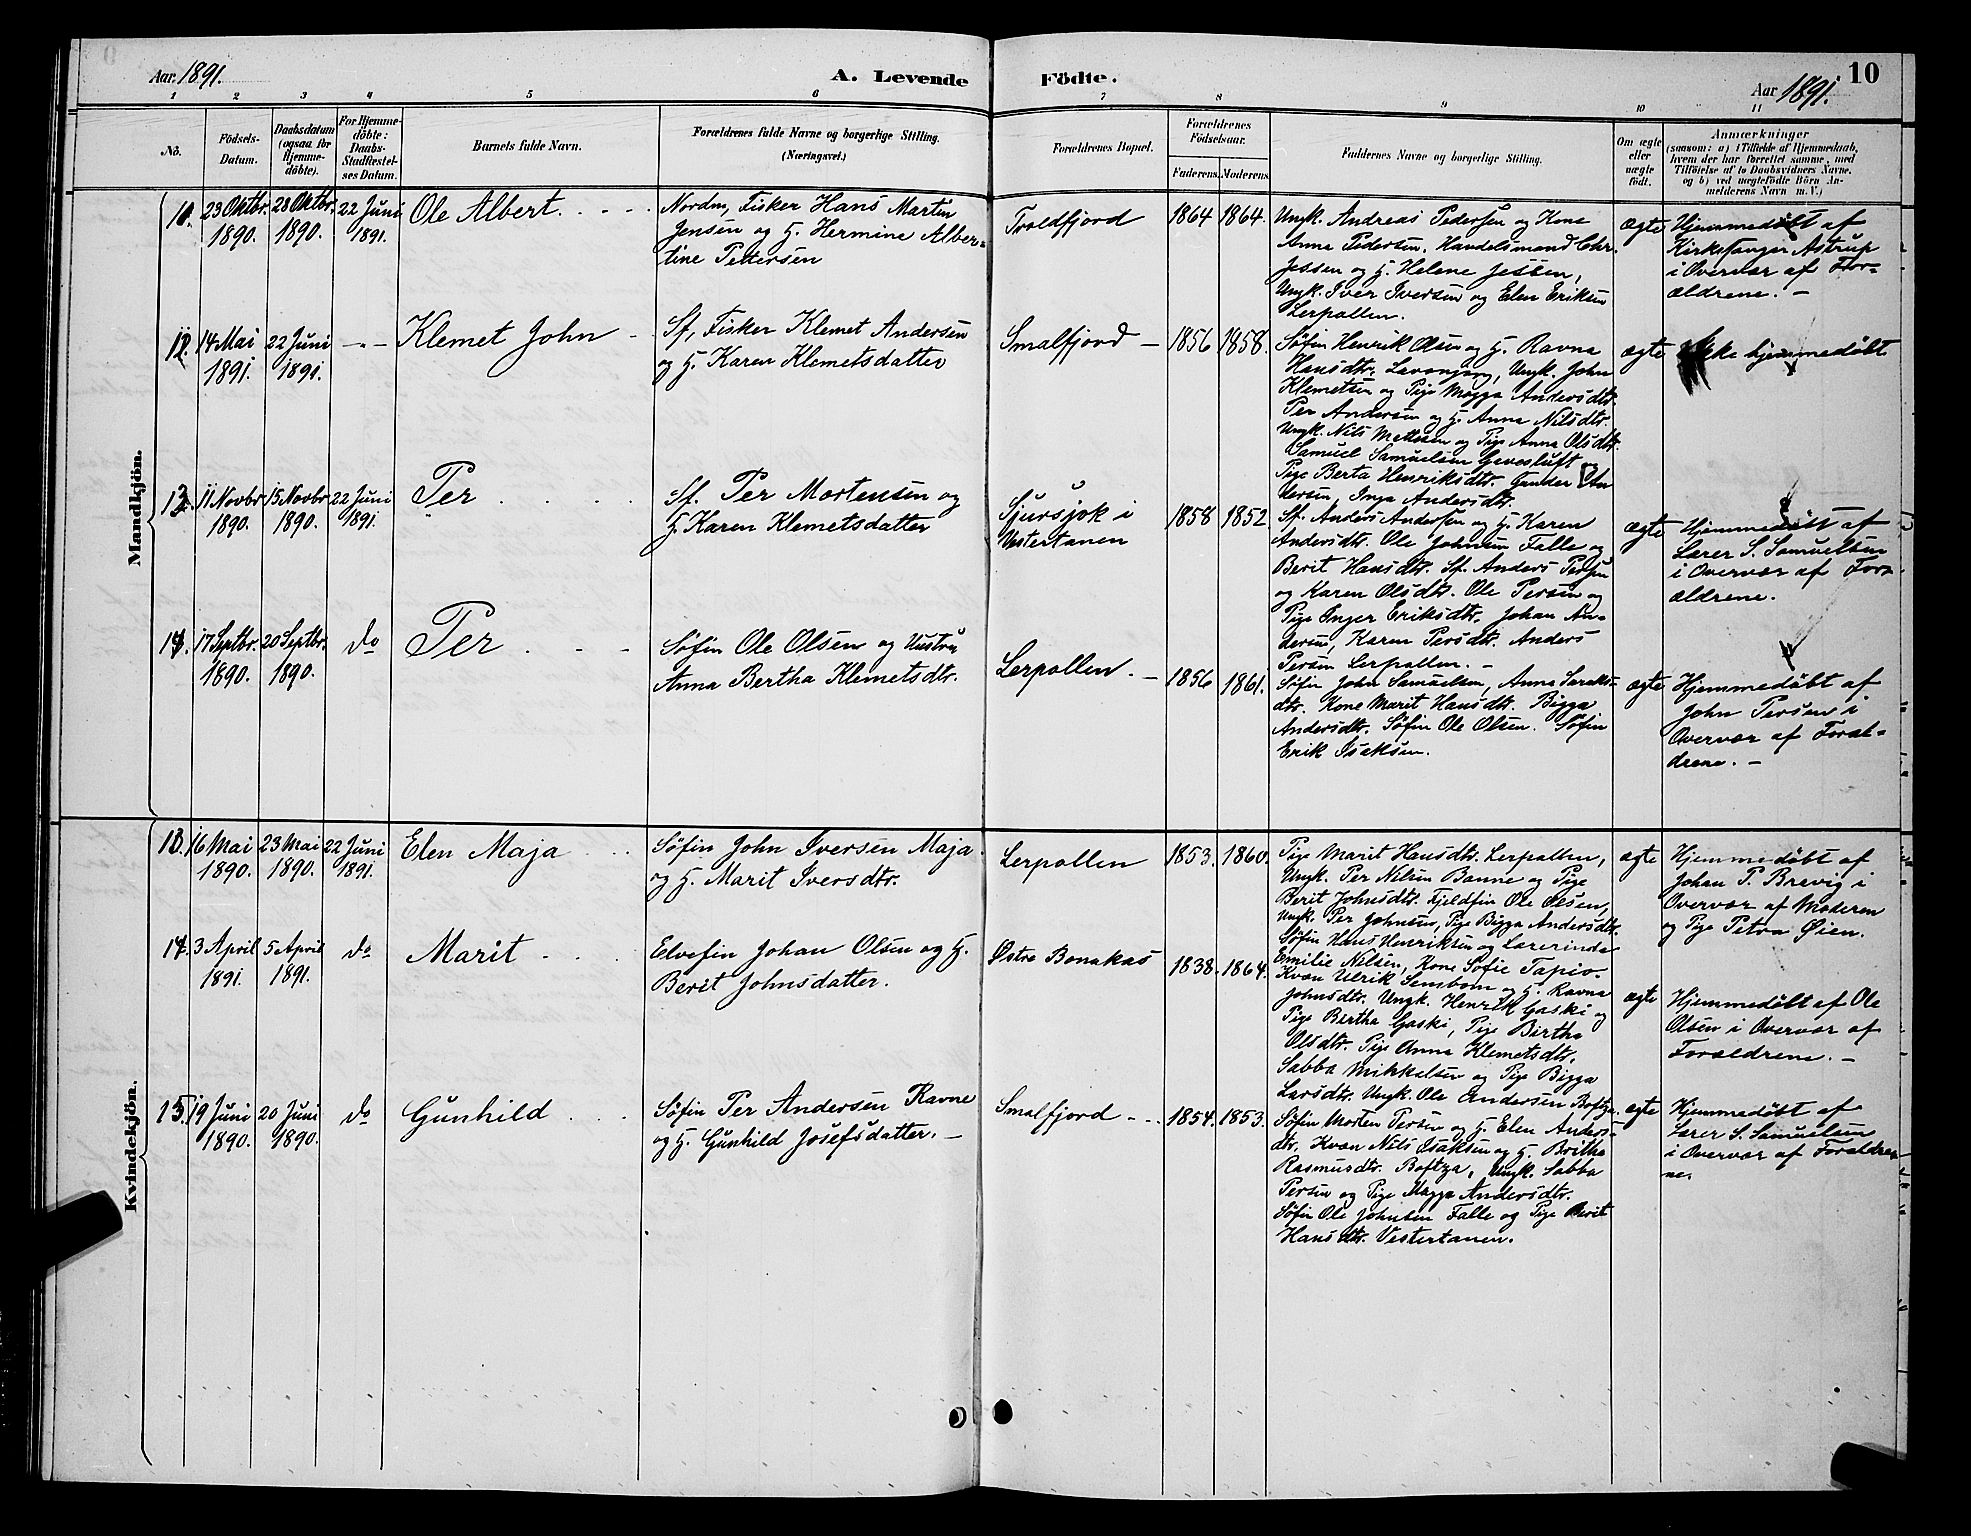 Aar 1891. A. Levende Födte. Aar 1891. 10
1 2 3 4 5 6 7 8 9 10 11
No. Födsels-Datum. Daabsdatum (ogsaa for Hjemmedöbte). For Hjemmedöbte: Daabs-Stadfæstelses Datum. Barnets fulde Navn. Forældrenes fulde Navne og borgerlige Stilling. (Næringsvei.) Forældrenes Bopæl. Forældrenes Födselsaar. Faderens. Moderens. Faddernes Navne og borgerlige Stilling. Om ægte eller uægte födt. Anmærkninger (saasom: a) i Tilfælde af Hjemmedaab, hvem der har forrettet samme, med Tilföielse af to Daabsvidners Navne, og b) ved uægtefödte Börn Anmelderens Navn m. V.)
Mandkjön.
23 Oktbr. 1890. 28 Oktbr. 1890. 22 Juni 1891. Ole Albert.
Nordm, Fisker Hans Martin
Jensen og H. Hermine Alber-
tine Pettersen
Troldfjord 1864 1864.
Ungk. Andreas Pedersen og Kone
Anna Pedersen, Handelsmand Chr.
Jessen og H. Helene Jessen,
Ungk. Iver Iversen og Elen Eriksen
Lerpollen.
ægte
Hjemmedøbt af
Kirkesanger Astrup
i Overvær af For-
ældrene. —
12. 14 Mai 1891. 22 Juni 1891. -"- Klemet John
Sf, Fisker Klemet Andersen
og H. Karen Klemetsdatter
Smalfjord — 1856 1858.
Søfin Henrik Olsen og H. Ravna
Hansdtr. Ungk. John
Klemetsen og Pige Magga Andersdtr.
Per Andersen og H. Anna Nilsdtr.
Ungk. Nils Mathisen og Pige Anna Olsdtr.
Samuel Samuelsen Gavesluft og
Pige Berta Henriksdtr. Gunder An
dersen, Inga Andersdtr.
ægte
Ikke hjemmedøbt
13. 11 Novbr 1890. 15 Novbr 1890. 22 Juni 1891. Per
Sf. Per Mortensen og
H. Karen Klemetsdatter
Sjursjok i
Vestertanen
1858 1852
Sf. Anders Andersen og H. Karen
Andersdtr. Ole Johnsen Falle og
Berit Hansdtr. Sf. Anders Persen
og Karen Olsdtr. Ole Persen og
Pige Inger Eriksdtr. Johan An-
dersen, Karen Persdtr. Anders
Persen Lerpollen. —
ægte
Hjemmedøbt af
Lærer S. Samuelsen
i Overvær af For-
ældrene.
14. 17 Septbr. 1890. 20 Septbr. 1890. do Per
Søfin Ole Olsen og Hustru
Anna Bertha Klemetsdtr.
Lerpollen. — 1856 1861.
Søfin John Samuelsen, Anna
dtr. Kone Marit Hansdtr. Bigga
Andersdtr. Søfin Ole Olsen. Søfin
Erik Isaksen.
ægte
Hjemmedøbt af
John Persen i
Overvær af Foræl-
drene. —
Kvindekjön.
13. 16 Mai 1890. 23 Mai 1890. 22 Juni 1891. Elen Maja
Søfin John Iversen Maja
og H. Marit Iversdtr.
Lerpollen 1853. 1860.
Pige Marit Hansdtr. Lerpollen,
Ungk. Per Nilsen Banne og Pige
Berit Johnsdtr. Fjeldfin Ole Olsen,
Ungk. Per Johnsen, Pige Bigga Andersdtr.
Søfin Hans Henriksen og Lærerinde
Emilie Nilsen, Kone Sofie Tapio.
ægte
Hjemmedøbt af
Johan P. Brevig i
Overvær af Moderen
og Pige Petra Øien.
14. 3 April 1891. 5 April 1891. do Marit
Elvefin Johan Olsen og H.
Berit Johnsdatter.
Østre Bonakas 1838. 1864.
Kvæn Ulrik og H. Ravna
Johnsdtr. Ungk. Henrik Gaski og
Pige Bertha Gaski, Pige Birtha
Olsdtr. Pige Anna Klemetsdtr.
Sabba Mikkelsen og Pige Bigga
Larsdtr. Ungk. Ole Andersen Boftza.
ægte
Hjemmedøbt af Ole
Olsen i Overvær af
Forældrene. —
15. 19 Juni 1890. 20 Juni 1890. do Gunhild
Søfin Per Andersen Ravne
og H. Gunhild Josefsdatter. —
Smalfjord 1854. 1853.
Søfin Morten Persen og H. Elen Anders-
dtr. Kvæn Nils Isaksen og H. Britha
Rasmusdtr. Boftza, Ungk. Sabba
Persen og Pige Magga Andersdtr.
Søfin Ole Johnsen Falle og Pige Berit
Hansdtr. Vestertanen.
ægte
Hjemmedøbt af
Lærer S. Samuelsen
i Overvær af Forældre-
ne.